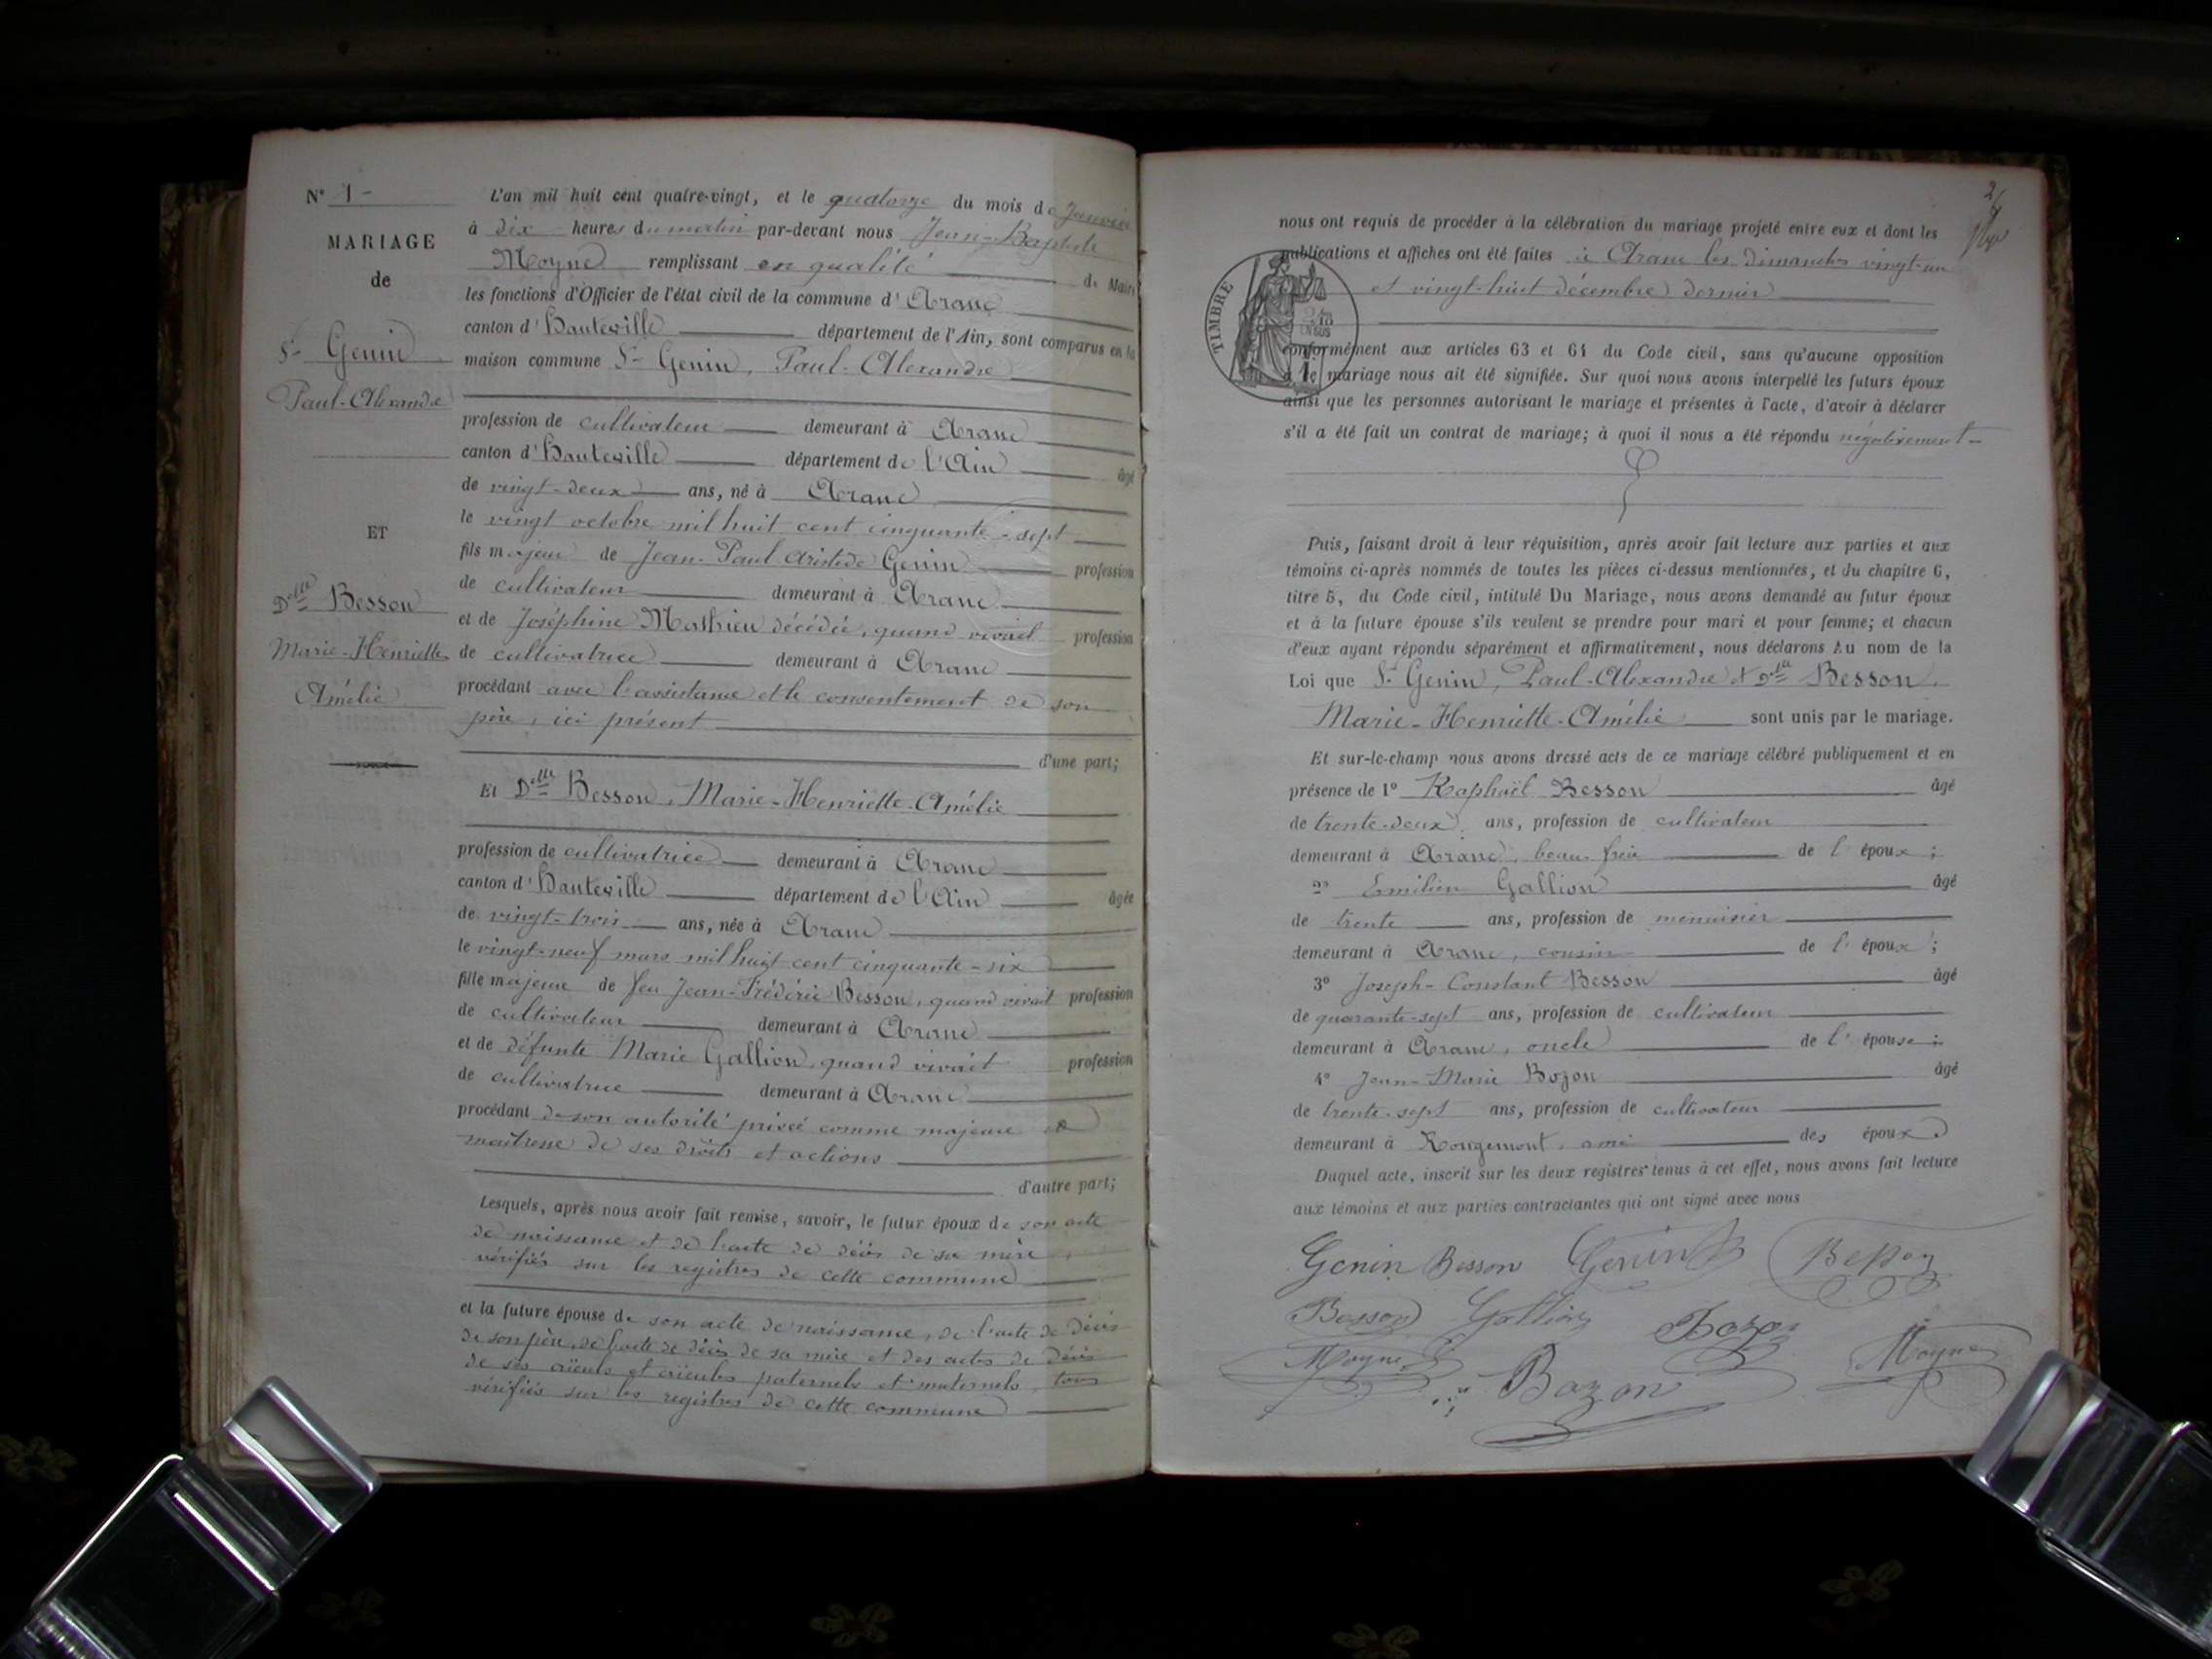 N° 1 -
MARIAGE
de
Sr Genin
Paul-Alexandre
ET
Delle Besson
Marie-Henriette
Amélie
L'an mil huit cent quatre-vingt, et le quatorze du mois de Janvier
à dix heures du matin par-devant nous Jean-Baptiste
Moyne remplissant en qualité de Maire
les fonctions d'Officier de l'état civil de la commune d'Aranc
canton d'Hauteville département de l'Ain, sont comparus en la
maison commune Sr Genin, Paul-Alexandre
profession de cultivateur demeurant à Aranc
canton d'Hauteville département de l'Ain âgé
de vingt-deux ans, né à Aranc
le vingt octobre mil huit cent cinquante-sept
fils majeur de Jean-Paul Aristide Genin profession
de cultivateur demeurant à Aranc
et de Joséphine Mathieu décédée, quand vivait profession
de cultivatrice demeurant à Aranc
procédant avec l'assistance et le consentement de son
père, ici présent
d'une part;
Et Delle Besson, Marie-Henriette-Amélie
profession de cultivatrice demeurant à Aranc
canton d'Hauteville département de l'Ain âgée
de vingt-trois ans, née à Aranc
le vingt-neuf mars mil huit cent cinquante-six
fille majeure de feu Jean-Frédéric Besson, quand vivait profession
de cultivateur demeurant à Aranc
et de défunte Marie Gallion, quand vivait profession
de cultivatrice demeurant à Aranc
procédant de son autorité privée comme majeure et
maîtresse de ses droits et actions
d'autre part;
Lesquels, après nous avoir fait remise, savoir, le futur époux de son acte
de naissance et de l'acte de décès de sa mère,
vérifiés sur les registres de cette commune
et la future épouse de son acte de naissance, de l'acte de décès
de son père, de l'acte de décès de sa mère et des actes de décès
de ses aïeuls et aïeules paternels et maternels, tous
vérifiés sur les registres de cette commune
2
nous ont requis de procéder à la célébration du mariage projeté entre eux et dont les
publications et affiches ont été faites à Aranc les dimanches vingt-un
et vingt-huit décembre dernier
TIMBRE
2/10
EN SUS
conformément aux articles 63 et 64 du Code civil, sans qu'aucune opposition
à ce mariage nous ait été signifiée. Sur quoi nous avons interpellé les futurs époux
ainsi que les personnes autorisant le mariage et présentes à l'acte, d'avoir à déclarer
s'il a été fait un contrat de mariage; à quoi il nous a été répondu négativement
Puis, faisant droit à leur réquisition, après avoir fait lecture aux parties et aux
témoins ci-après nommés de toutes les pièces ci-dessus mentionnées, et du chapitre 6,
titre 5, du Code civil, intitulé Du Mariage, nous avons demandé au futur époux
et à la future épouse s'ils veulent se prendre pour mari et pour femme; et chacun
d'eux ayant répondu séparément et affirmativement, nous déclarons Au nom de la
Loi que Sr Genin, Paul-Alexandre et Delle Besson,
Marie-Henriette-Amélie sont unis par le mariage.
Et sur-le-champ nous avons dressé acte de ce mariage célébré publiquement et en
présence de 1° Raphaël Besson âgé
de trente-deux ans, profession de cultivateur
demeurant à Aranc, beau-frère de l'époux;
2° Emilien Gallion âgé
de trente ans, profession de menuisier
demeurant à Aranc, cousin de l'époux;
3° Joseph-Constant Besson âgé
de quarante-sept ans, profession de cultivateur
demeurant à Aranc, oncle de l'épouse;
4° Jean-Marie Bozon âgé
de trente-sept ans, profession de cultivateur
demeurant à Rougemont, ami des époux
Duquel acte, inscrit sur les deux registres tenus à cet effet, nous avons fait lecture
aux témoins et aux parties contractantes qui ont signé avec nous
Genin Besson Genin Besson
Besson Gallion Bozon
Moyne Bozon Moyne